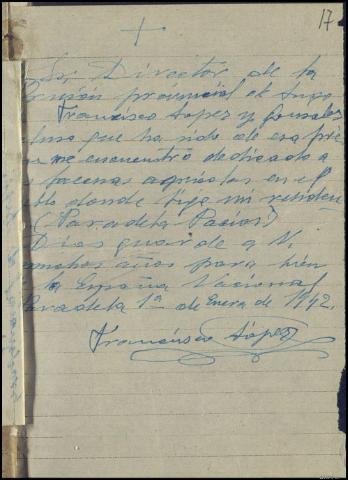 17
+
Sr, Director de la
Prision provincial de Lugo
Francisco Lopez y Gonzalez
cluso que ha sido de esa pri
n me encuentro dedicado a
s faenas agricolas en el P
blo donde fije mi residen
(Paradela Pacios)
Dios guarde a V.
muchos años para bien
e la España Nacional
Paradela 1º de Enero de 1942.
Francisco López